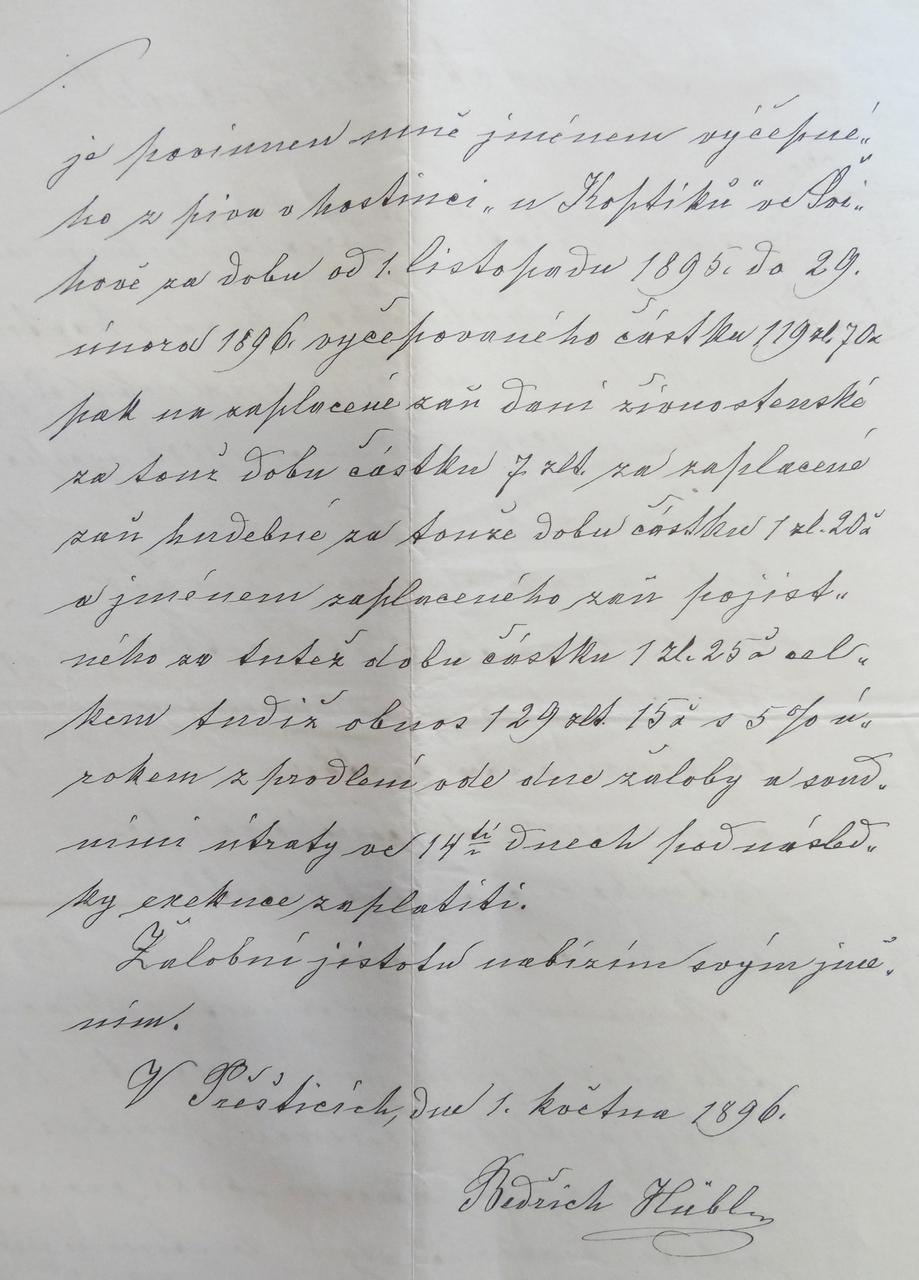 je povinnen mně jménem výčepné„
ho z piva v hostinci „u Koptíků“ ve Švi„
hově za dobu od 1. listopadu 1895. do 29.
února 1896. vyčepovaného částku 119 zl. 70 x
pak na zaplacené zaň dani živnostenské
za touž dobu částku 7 zlt. za zaplacené
zaň hudebné za touže dobu částku 1 zl. 20 x
a jménem zaplaceného zaň pojist„
ného za tutež dobu částku 1 zl. 25 x cel„
kem tudíž obnos 129 zlt. 15 x s 5 % ú„
rokem z prodlení ode dne žaloby a soud„
ními útraty ve 14ti dnech pod násled„
ky exekuce zaplatiti.
Žalobní jistotu nabízím svým jmě„
ním.
V Přešticích, dne 1. května 1896.
Bedřich Hübl